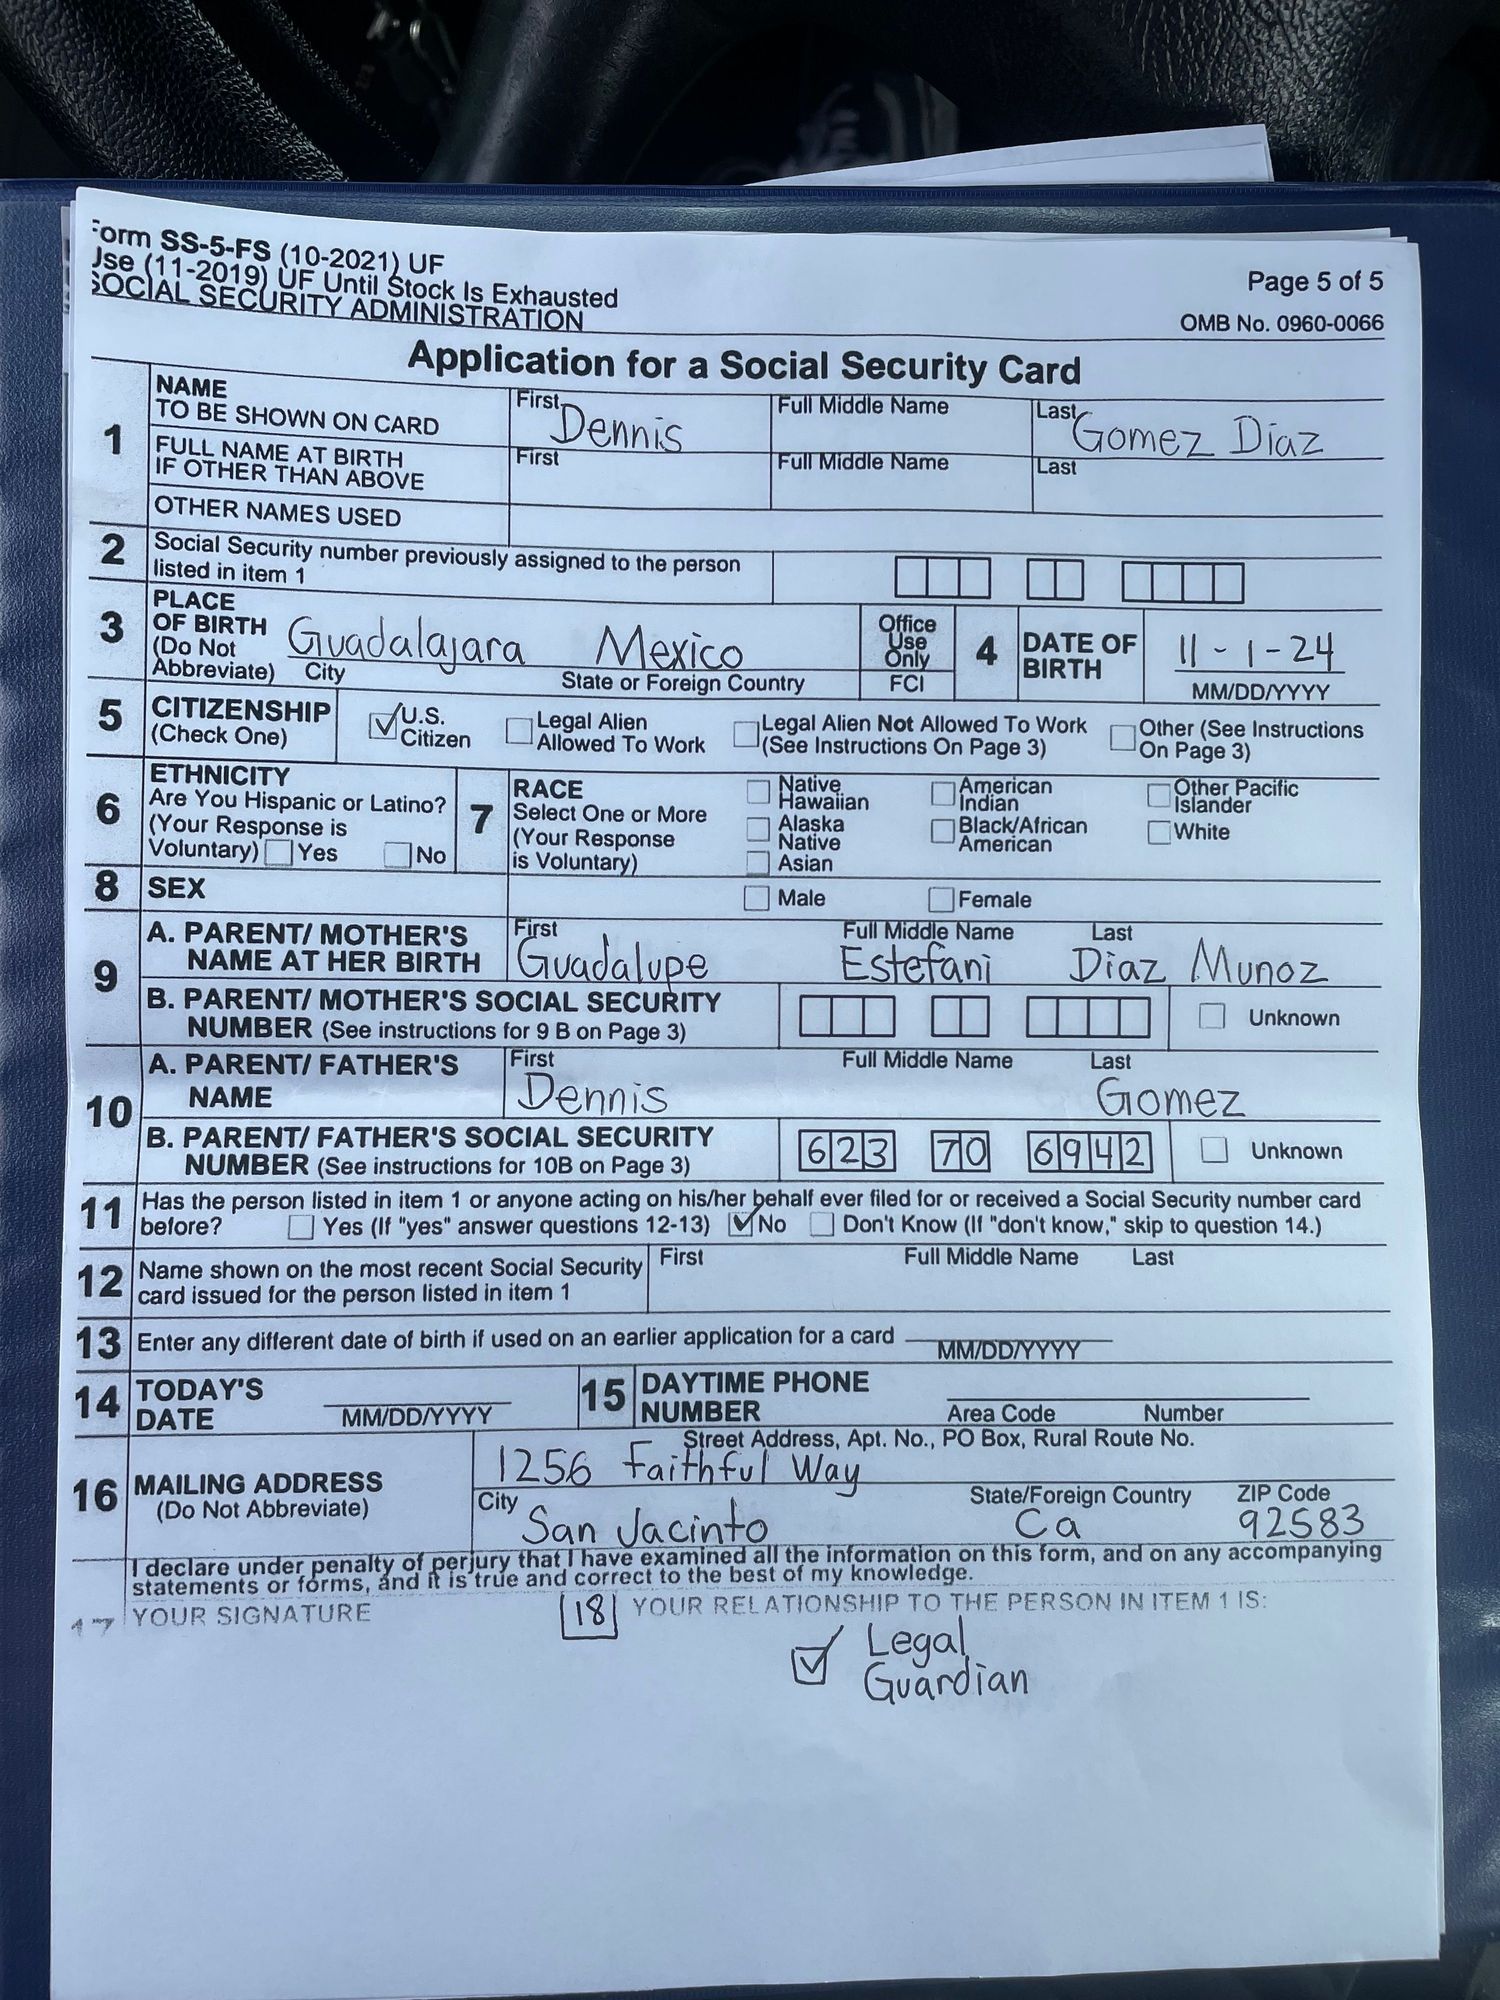 Form SS-5-FS (10-2021) UF
Use (11-2019) UF Until Stock Is Exhausted
SOCIAL SECURITY ADMINISTRATION
Page 5 of 5
OMB No. 0960-0066
Application for a Social Security Card
1 NAME TO BE SHOWN ON CARD First Dennis Full Middle Name Last Gomez Diaz
FULL NAME AT BIRTH IF OTHER THAN ABOVE First Full Middle Name Last
OTHER NAMES USED
2 Social Security number previously assigned to the person
listed in item 1
3 PLACE
OF BIRTH
(Do Not
Abbreviate)
Guadalajara Mexico
City State or Foreign Country
Office
Use
Only
FCI
4 DATE OF
BIRTH
11-1-24
MM/DD/YYYY
5 CITIZENSHIP
(Check One)
✓ U.S.
Citizen
Legal Alien
Allowed To Work
Legal Alien Not Allowed To Work
(See Instructions On Page 3)
Other (See Instructions
On Page 3)
6 ETHNICITY
Are You Hispanic or Latino?
(Your Response is
Voluntary) Yes No
7 RACE
Select One or More
(Your Response
is Voluntary)
Native
Hawaiian
Alaska
Native
Asian
American
Indian
Black/African
American
Other Pacific
Islander
White
8 SEX Male Female
9 A. PARENT/ MOTHER'S
NAME AT HER BIRTH
First Full Middle Name Last
Guadalupe Estefani Diaz Munoz
B. PARENT/ MOTHER'S SOCIAL SECURITY
NUMBER (See instructions for 9 B on Page 3)
Unknown
10 A. PARENT/ FATHER'S
NAME
First Full Middle Name Last
Dennis Gomez
B. PARENT/ FATHER'S SOCIAL SECURITY
NUMBER (See instructions for 10B on Page 3)
623 70 6942
Unknown
11 Has the person listed in item 1 or anyone acting on his/her behalf ever filed for or received a Social Security number card
before? Yes (If "yes" answer questions 12-13) ✓ No Don't Know (If "don't know," skip to question 14.)
12 Name shown on the most recent Social Security
card issued for the person listed in item 1
First Full Middle Name Last
13 Enter any different date of birth if used on an earlier application for a card
MM/DD/YYYY
14 TODAY'S
DATE
MM/DD/YYYY
15 DAYTIME PHONE
NUMBER
Area Code Number
16 MAILING ADDRESS
(Do Not Abbreviate)
Street Address, Apt. No., PO Box, Rural Route No.
1256 Faithful Way
City State/Foreign Country ZIP Code
San Jacinto Ca 92583
I declare under penalty of perjury that I have examined all the information on this form, and on any accompanying
statements or forms, and it is true and correct to the best of my knowledge.
17 YOUR SIGNATURE 18 YOUR RELATIONSHIP TO THE PERSON IN ITEM 1 IS:
✓ Legal
Guardian